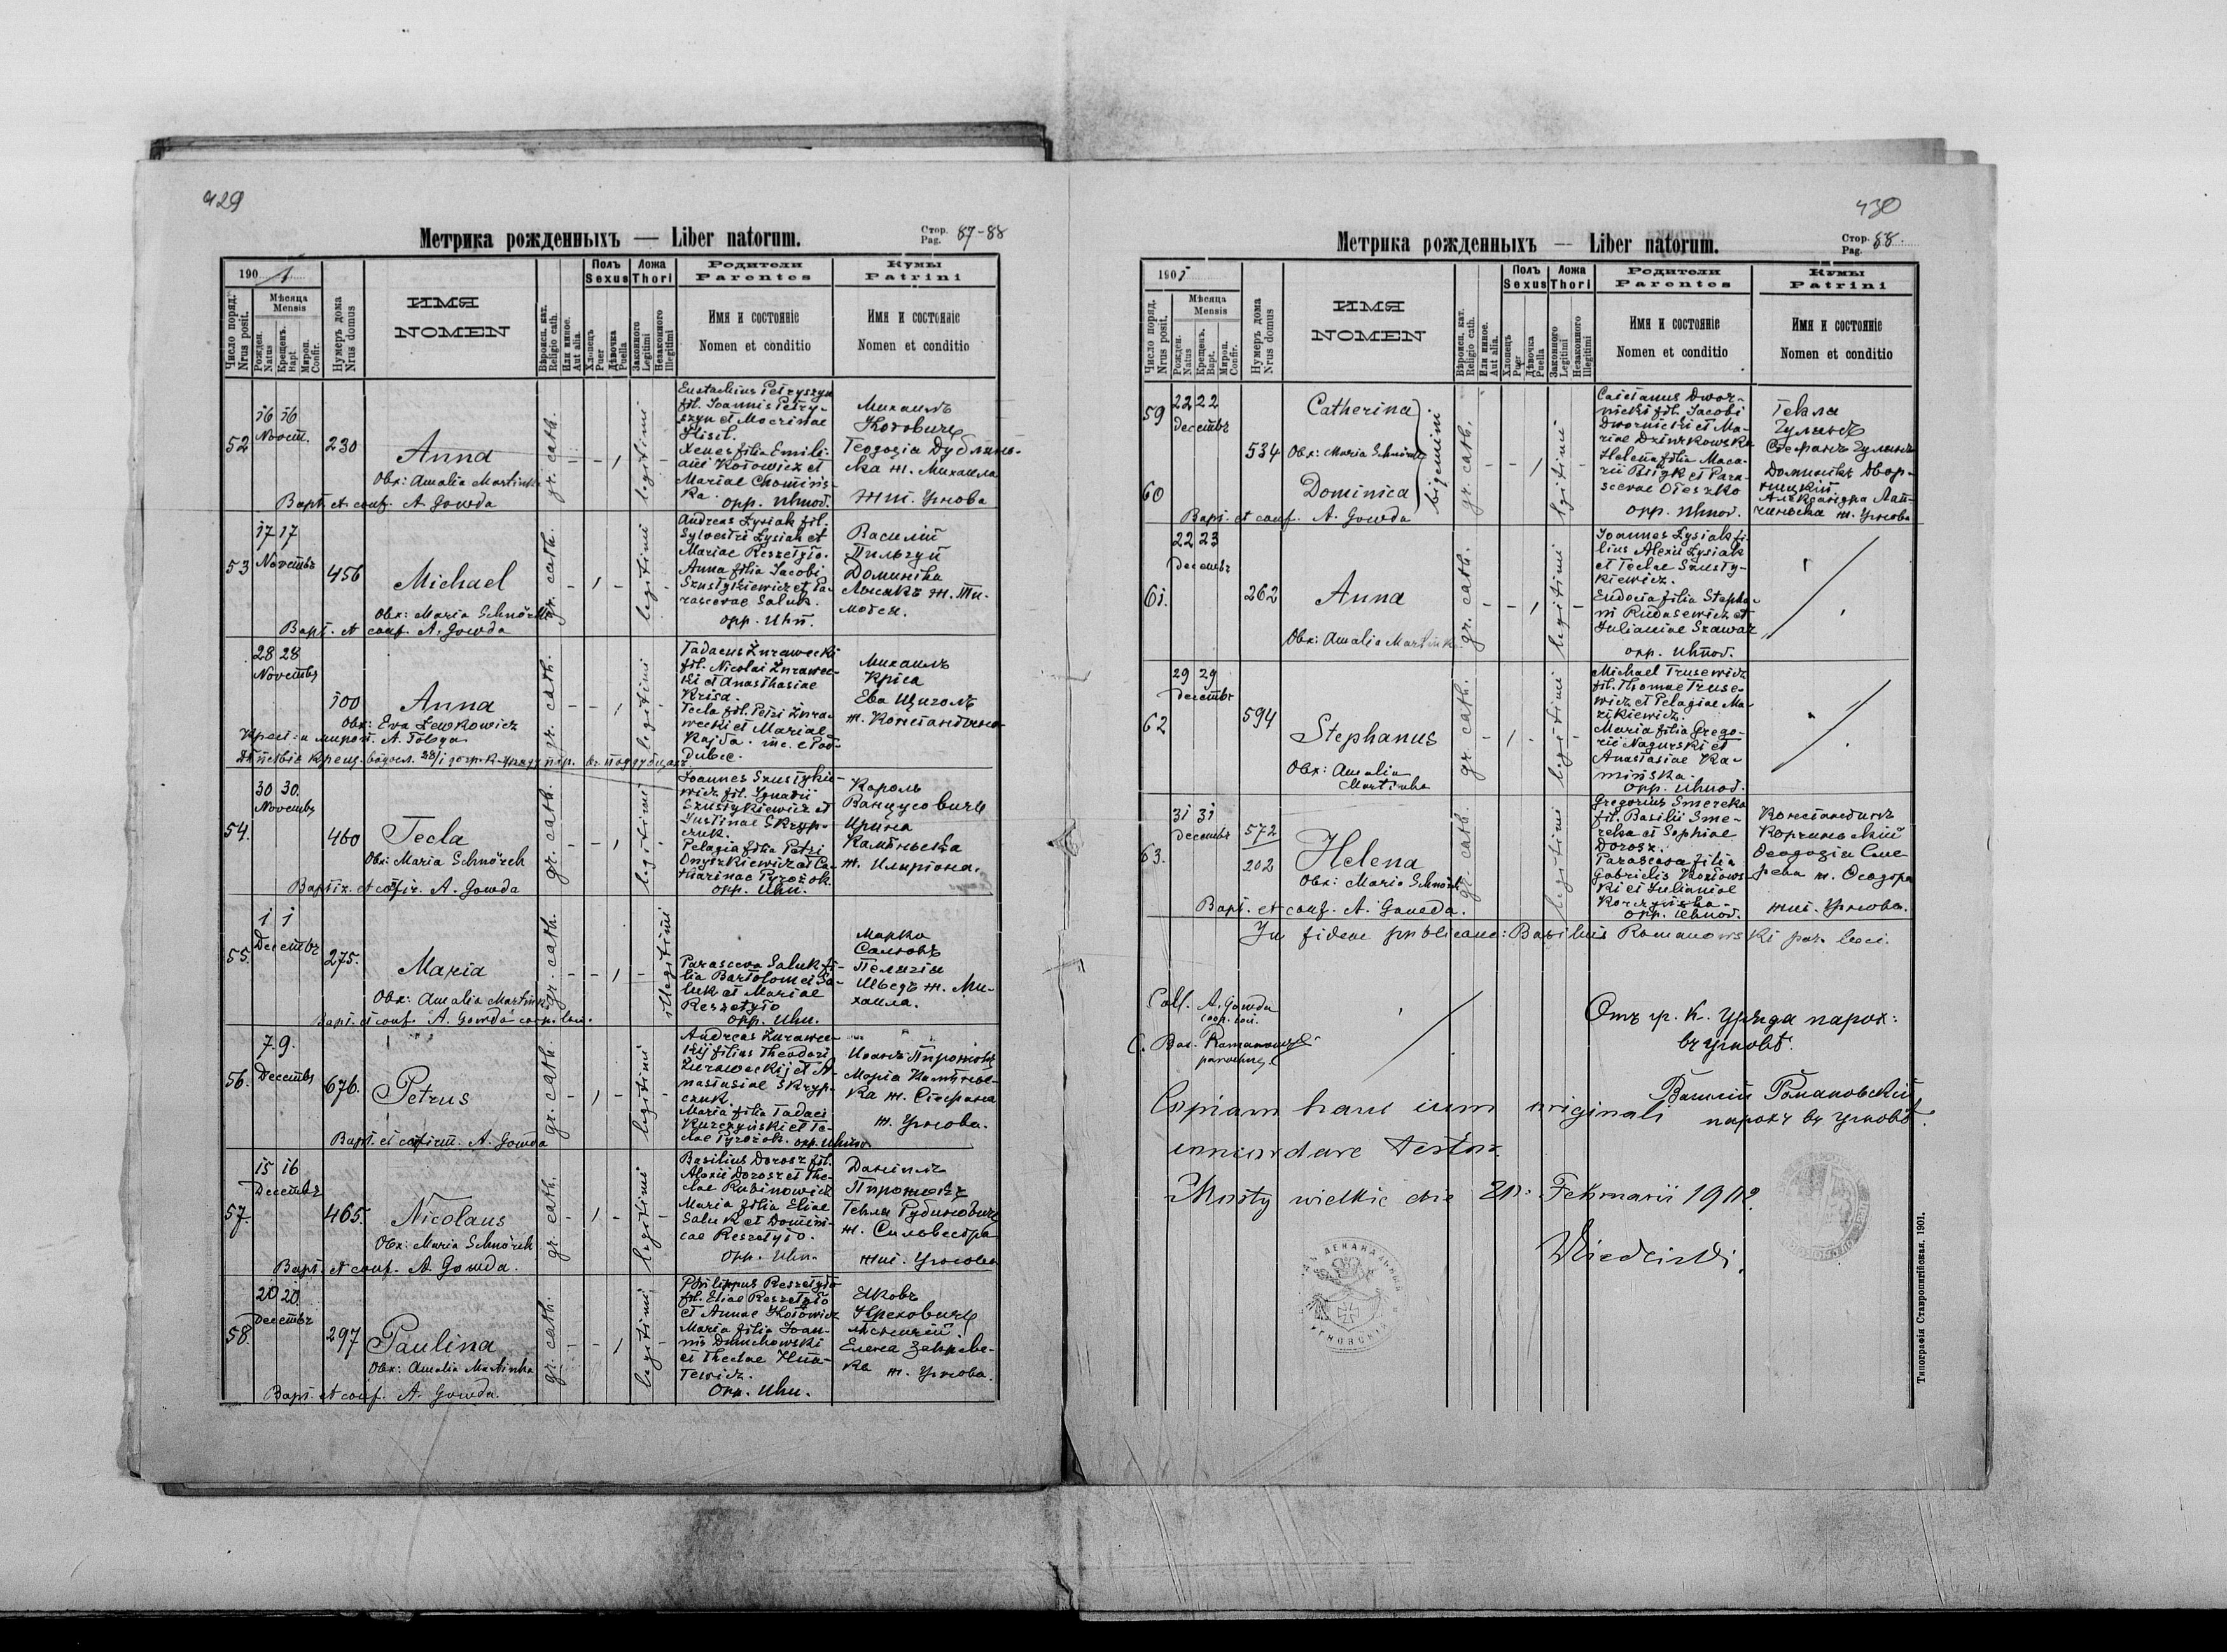 429
Метрика рожденныхъ — Liber natorum.
Стор. Pag. 87-88
190 1
Число поряд. Nrus posit.
Мѣсяца Mensis
Рожден. Natus
Крещенъ. Bapt.
Мѵроп. Confir.
Нумеръ дома Nrus domus
ИМЯ
NOMEN
Вѣроисп. кат. Religio cath.
Или инное. Aut alia.
Полъ Sexus
Хлопецъ Puer
Дѣвочка Puella
Ложа Thori
Законного Legitimi
Незаконного Illegitimi
Родители
Parentes
Имя и состояніе
Nomen et conditio
Кумы
Patrini
Имя и состояніе
Nomen et conditio
52
16 16
Novem.
230
Anna
Obx: Amalia Martinka
Bapt. et conf. A. Gowda
gr. cath.
legitimi
Eustachius Petryszyn
fil. Joannis Petry-
szyn et Macrinae
Hisel.
Xenes filia Emili-
ani Kotowicz et
Mariae Chomins-
ka. opp. Uhnov.
Михаилъ
Котовичъ
Теодозія
ка ж. Михаила
жит. Угнова
53
17 17
Novembr
456
Michael
Obx: Maria Schnörch
Bapt. et conf. A. Gowda
gr. cath.
legitimi
Andreas Łysiak fil.
Sylvestri Łysiak et
Mariae Reszetyło.
Anna filia Jacobi
Szustykiewicz et Pa-
rascevae Saluk.
opp. Uhn.
Василій
Пильгуй
Домініка
Лысакъ ж. Ти-
мотея.
28 28
Novembr
100
Anna
Obx: Eva Lewkowicz
Крест. и миров. А. Говда
gr. cath.
legitimi
Tadaeus Żurawecki
fil. Nicolai Żurawec-
ki et Anasthasiae
Krisa.
Tecla fil. Petri Żura-
wecki et Mariae
Kajda. inc. e Pod-
dubec.
Михаилъ
Кріса
Ева Щиголь
ж. Константина
54.
30 30.
Novembr
460
Tecla
Obx: Maria Schnörch
Baptiz. et cofir. A. Gowda
gr. cath.
legitimi
Joannes Szustykie-
wicz fil. Ignatii
Szustykiewicz et
Justinae Skryp-
czuk.
Pelagia filia Petri
Onyszkiewicz et Ca-
tharinae Pyrożok.
opp. Uhn.
Кароль
Ванцусовичъ
Ирина
Камѣньска
ж. Иляріона.
55.
1 1
Decembr
275.
Maria
Obx: Amalia Martinka
Bapt. et conf. A. Gowda coop. loci.
gr. cath.
illegitimi
Parasceva Saluk fi-
lia Bartolomei Sa-
luk et Mariae
Reszetyło
opp. Uhn.
Марко
Салюкъ
Пелягія
Шведъ ж. Ми-
хаила.
56.
7. 9.
Decembr
676.
Petrus
Bapt. et cofirm. A. Gowda
gr. cath.
legitimi
Andreas Żurawec-
kij filius Theodori
Żuraweckij et A-
nastasiae Skryp-
czuk.
Maria filia Tadaei
Kurczyński et Te-
clae Pyrożok. opp. Uhnov.
Иванъ Пирожокъ
Марія Камѣнь-
ка ж. Стефана
ж. Угнова.
57.
15 16
Decembr
465.
Nicolaus
Obx: Maria Schnörch
Bapt. et conf. A. Gowda.
gr. cath.
legitimi
Basilius Dorosz fil.
Alexii Dorosz et The-
clae Rubinowicz
Maria filia Eliae
Saluk et Domini-
cae Reszetyło.
opp. Uhn.
Даніилъ
Пирожокъ
Текля Рубиновичъ
ж. Сильвестра
жит. Угнова
58.
20 20.
Decembr
297
Paulina
Obx: Amalia Martinka
Bapt. et conf. A. Gowda.
gr. cath.
legitimi
Philippus Reszetyło
fil. Eliae Reszetyło
et Annae Kotowicz
Maria filia Joan-
nis Dmuchowski
et Theclae Hna-
tewicz.
Opp. Uhn.
Яковъ
Елена
ка ж. Угнова.
430
Метрика рожденныхъ — Liber natorum.
Стор. Pag. 88.
190 1
Число поряд. Nrus posit.
Мѣсяца Mensis
Рожден. Natus
Крещенъ. Bapt.
Мѵроп. Confir.
Нумеръ дома Nrus domus
ИМЯ
NOMEN
Вѣроисп. кат. Religio cath.
Или инное. Aut alia.
Полъ Sexus
Хлопецъ Puer
Дѣвочка Puella
Ложа Thori
Законного Legitimi
Незаконного Illegitimi
Родители
Parentes
Имя и состояніе
Nomen et conditio
Кумы
Patrini
Имя и состояніе
Nomen et conditio
59
22 22
Decembr
Catherina
534
Obx: Maria Schnörch
60
Dominica
bigemini
Bapt. et conf. A. Gowda
gr. cath.
legitimi
Caietanus Dwor-
nicki fil. Jacobi
Dwornicki et Ma-
riae Dziurkowska
Helena filia Maca-
rii Bsigk et Para-
scevae Oleszko
opp. Uhnov.
Текла
Гулыкъ
Стефанъ Гулыкъ
Домникъ Двор-
ницкій
Александра Лап-
чиньска ж. Угнова
61.
22 23
Decembr
262
Anna
Obx: Amalia Martinka
gr. cath.
legitimi
Joannes Łysiak fi-
lius Alexii Łysiak
et Teclae Szusty-
kiewicz.
Eudocia filia Stepha-
ni Rudasewicz et
Julianiae Szawar
opp. Uhnov.
62
29 29
Decembr
594
Stephanus
Obx: Amalia
Martinka
gr. cath.
legitimi
Michael Trusewicz
fil. Thomae Truse-
wicz et Pelagiae Ma-
zikiewicz.
Maria filia Grego-
rii Nagurski et
Anastasiae Ka-
mińska.
opp. Uhnov.
63.
31 31
Decembr
572
202
Helena
Obx: Maria Schnörch
Bapt. et conf. A. Gowda.
gr. cath.
legitimi
Gregorius Smereka
fil. Basilii Sme-
reka et Sophiae
Dorosz.
Parasceva filia
Gabrielis Kozłows-
ki et Julianiae
Korczyńska.
opp. Uhnov.
Константинъ
Корчиньскій
Феодозія Сме-
река ж. Феодора
жит. Угнова.
In fidem publicam: Basilius Romanowski par. loci.
Coll. A. Gowda
coop. loci.
C. Bas. Romanowski
parochus
Отъ гр. к. уряда парох:
въ Угновѣ.
Василій Романовскій
парохъ въ Угновѣ.
Copiam hanc cum originali
concordare testor
Mosty wielkie die 20. Februarii 1902.
Типографія Ставропигійская. 1901.